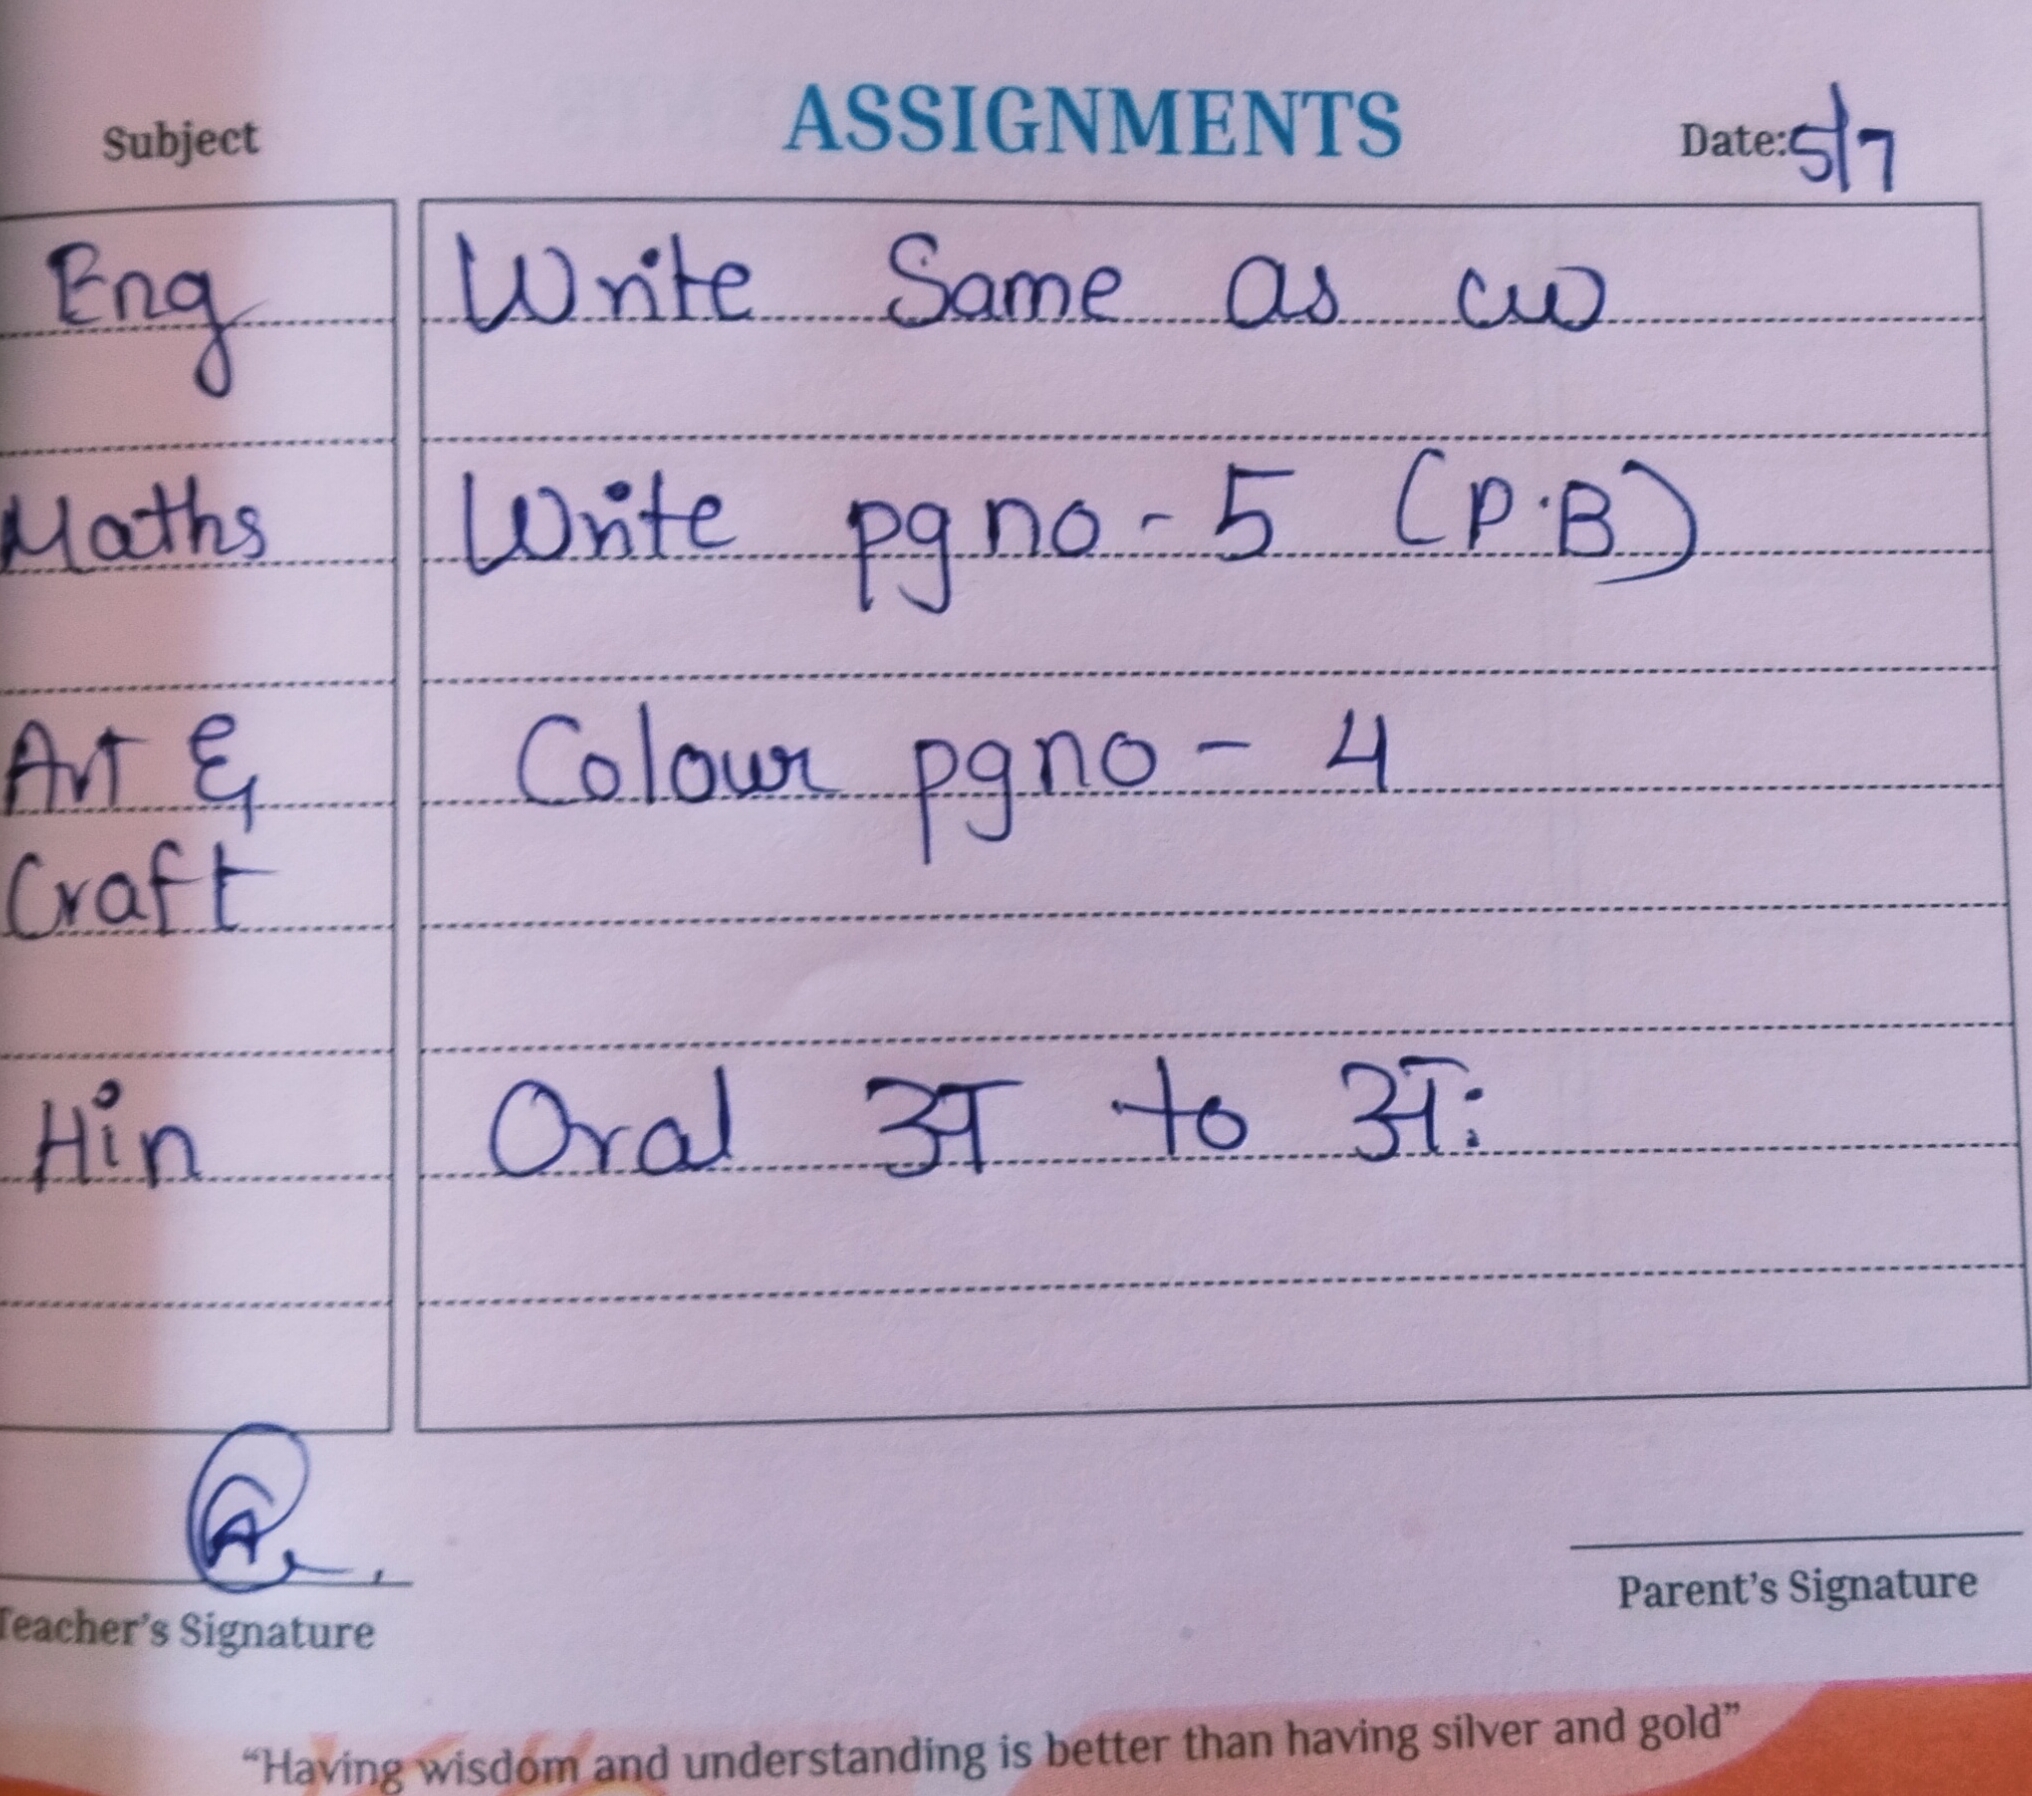 Subject ASSIGNMENTS Date: 5/7
Eng Write Same as cw
Maths Write pg no - 5 (P.B)
Art & Colour pg no - 4
Craft
Hin Oral अ to अः
Teacher's Signature Parent's Signature
“Having wisdom and understanding is better than having silver and gold”